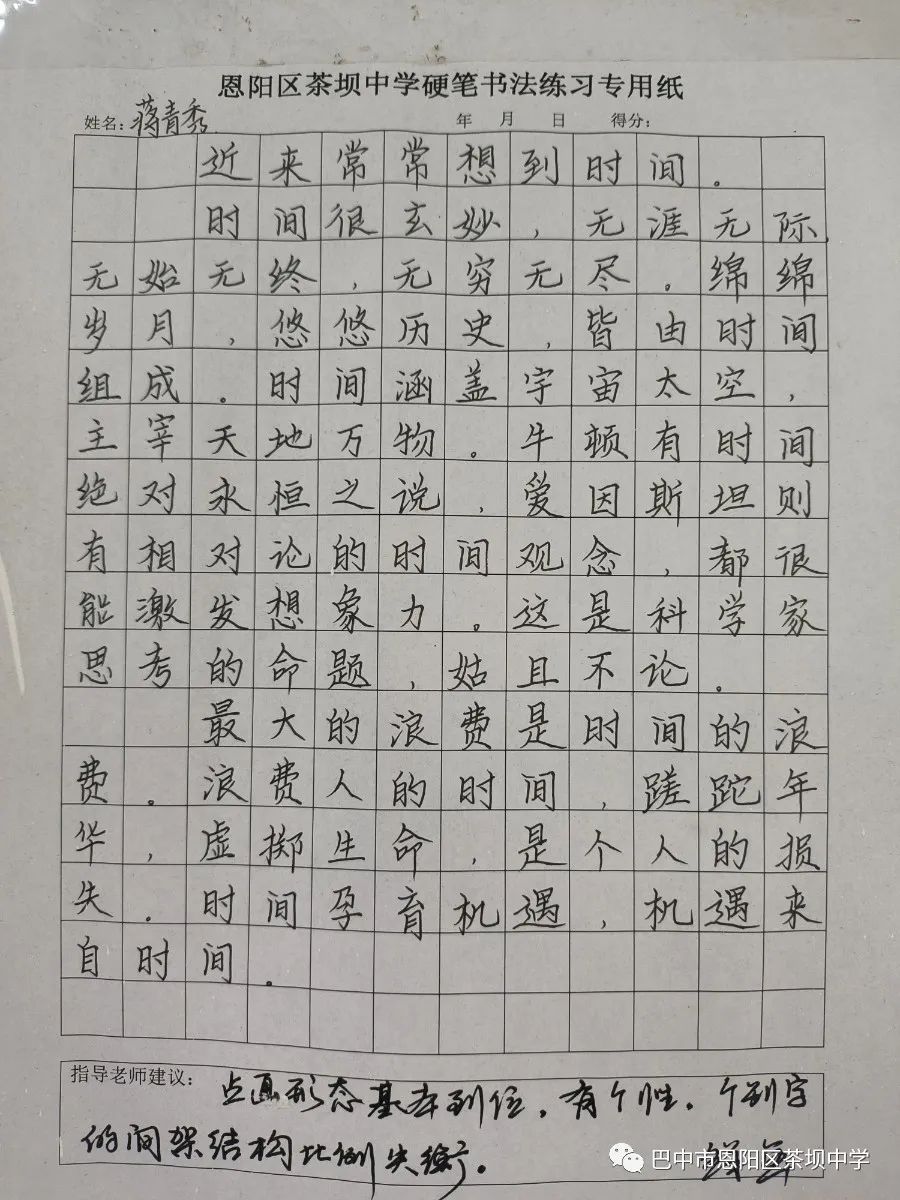 恩阳区茶坝中学硬笔书法练习专用纸
姓名：蒋青秀 年 月 日 得分：
近来常常想到时间。
时间很玄妙，无涯无际，
无始无终，无穷无尽。绵绵
岁月，悠悠历史，皆由时间
组成。时间涵盖宇宙太空，
主宰天地万物。牛顿有时间
绝对永恒之说，爱因斯坦则
有相对论的时间观念，都很
能激发想象力。这是科学家
思考的命题，姑且不论。
最大的浪费是时间的浪
费。浪费人的时间，蹉跎年
华，虚掷生命，是个人的损
失。时间孕育机遇，机遇来
自时间。
指导老师建议：
点画形态基本到位，有个性，个别字
的间架结构比例失衡。
巴中市恩阳区茶坝中学